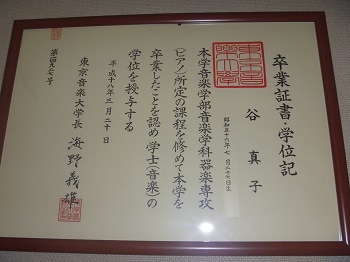 卒業証書・学位記
谷真子
昭和五十六年七月二十七日生
本学音楽学部音楽学科器楽専攻
(ピアノ)所定の課程を修めて本学を
卒業したことを認め学士(音楽)の
学位を授与する
平成十八年三月二十日
東京音楽大学長 海野義雄